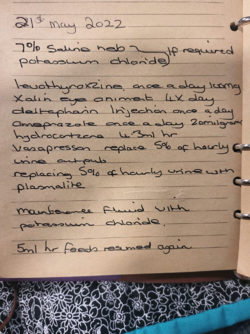 21st May 2022
7% Saline neb } If required
potassium chloride)
levothyroxzine, once a day 100mg
Xalin eye oniment 4x day
daltapharin Injection once a day
Omeprazole once a day 20milligrams
hydrocortzone 4.3ml hr
Vasopressor replace 5% of hourly
urine output
replacing 5% of hourly urine with
plasmalite
maintenance fluid with
potassium chloride.
5ml hr feeds resumed again